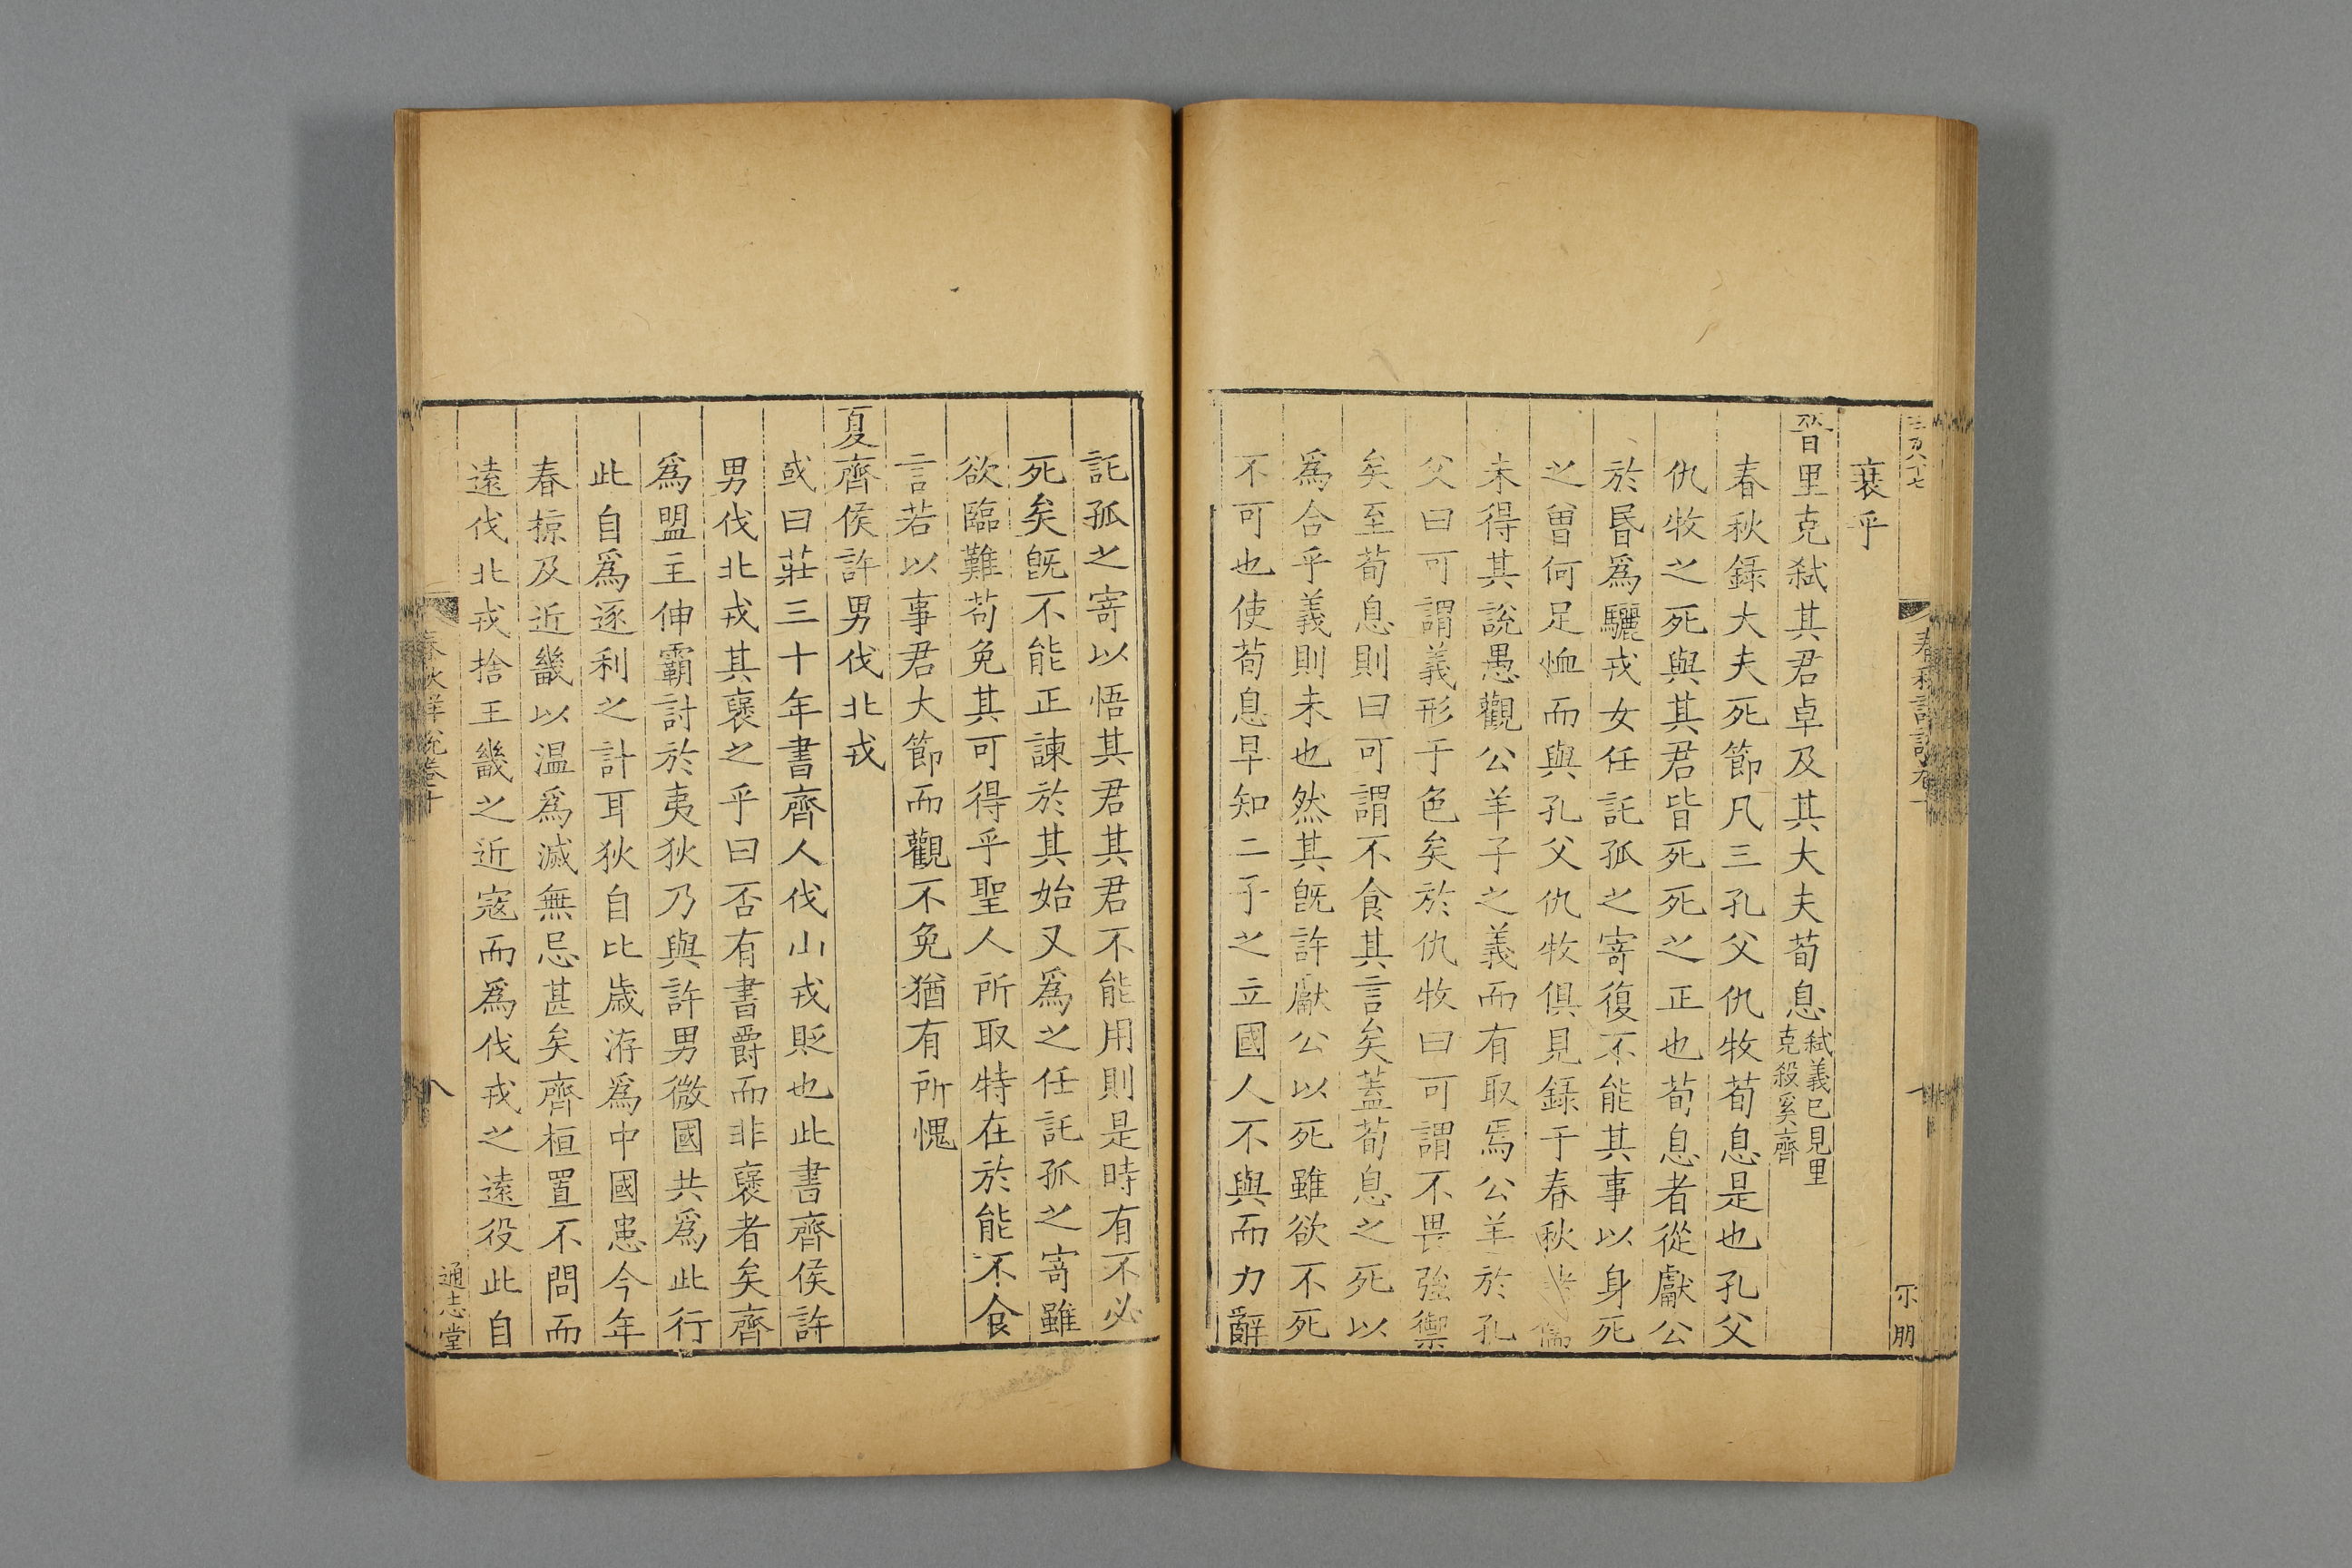 衰乎
晉里克弑其君卓及其大夫荀息弑義已見里克殺奚齊
春秋錄大夫死節凡三孔父仇牧荀息是也孔父
仇牧之死與其君皆死死之正也荀息者從獻公
於昬爲驪戎女任託孤之寄復不能其事以身死
之曾何足恤而與孔父仇牧俱見錄于春秋儒
未得其說愚觀公羊子之義而有取焉公羊於孔
父曰可謂義形于色矣於仇牧曰可謂不畏強禦
矣至荀息則曰可謂不食其言矣蓋荀息之死以
爲合乎義則未也然其旣許獻公以死雖欲不死
不可也使荀息早知二子之立國人不與而力辭
託孤之寄以悟其君其君不能用則是時有不必
死矣旣不能正諫於其始又爲之任託孤之寄雖
欲臨難苟免其可得乎聖人所取特在於能不食
言若以事君大節而觀不免猶有所愧
夏齊侯許男伐北戎
或曰莊三十年書齊人伐山戎貶也此書齊侯許
男伐北戎其襃之乎曰否有書爵而非襃者矣齊
爲盟主伸霸討於夷狄乃與許男微國共爲此行
此自爲逐利之計耳狄自比歲洊爲中國患今年
春掠及近畿以温爲滅無忌甚矣齊桓置不問而
遠伐北戎捨王畿之近寇而爲伐戎之遠役此自
春秋詳說卷十
八
通志堂